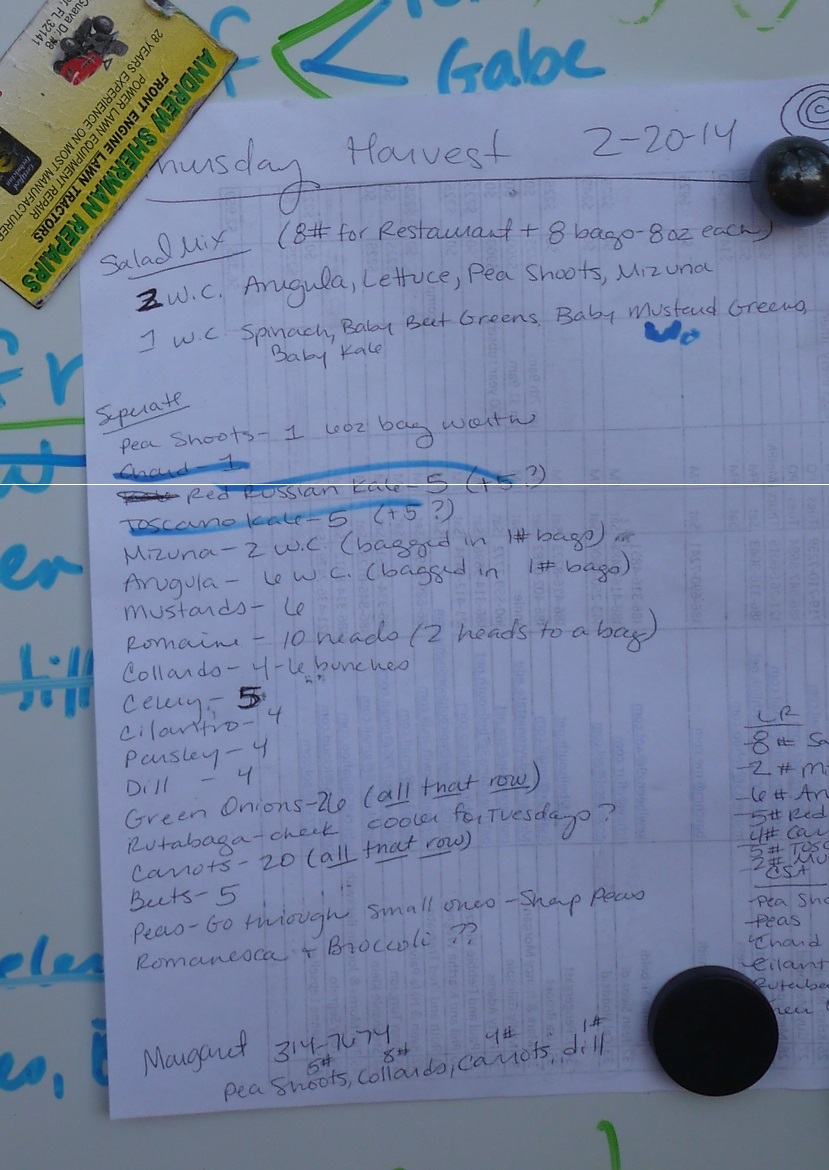 Gabe
Guava Dr #8
r, FL 32141
28 YEARS EXPERIENCE ON MOST MANUFACTURER
POWER LAWN EQUIPMENT REPAIR
FRONT ENGINE LAWN TRACTORS
ANDREW SHERMAN REPAIRS
hursday Harvest 2-20-14
Salad Mix (8# for Restaurant + 8 bags-8oz each)
2 W.C. Arugula, Lettuce, Pea Shoots, Mizuna
1 W.C. Spinach, Baby Beet Greens, Baby Mustard Greens,
Baby Kale
Seperate
Pea Shoots- 1 6oz bag worth
Chard - 1
Red Russian Kale- 5 (+5?)
Toscano Kale- 5 (+5?)
Mizuna- 2 W.C. (bagged in 1# bags)
Arugula- 6 W.C. (bagged in 1# bags)
Mustards- 6
Romaine - 10 heads (2 heads to a bag)
Collards- 4-6 bunches
Celery- 5
Cilantro- 4
Parsley- 4
Dill - 4
Green Onions-26 (all that row)
Rutabaga-check cooler for Tuesdays?
Carrots- 20 (all that row)
Beets- 5
Peas-Go through small ones - Snap Peas
Romanesca + Broccoli ??
Margaret 314-7674
5# 8# 4# 1#
Pea Shoots, Collards, Carrots, dill
LR
-8# Sa
-2# m
-6# Ar
-5# Red
4# Car
-5# Tosc
-2# Mu
CSA
-Pea Sho
-Peas
-Chard
-Cilant